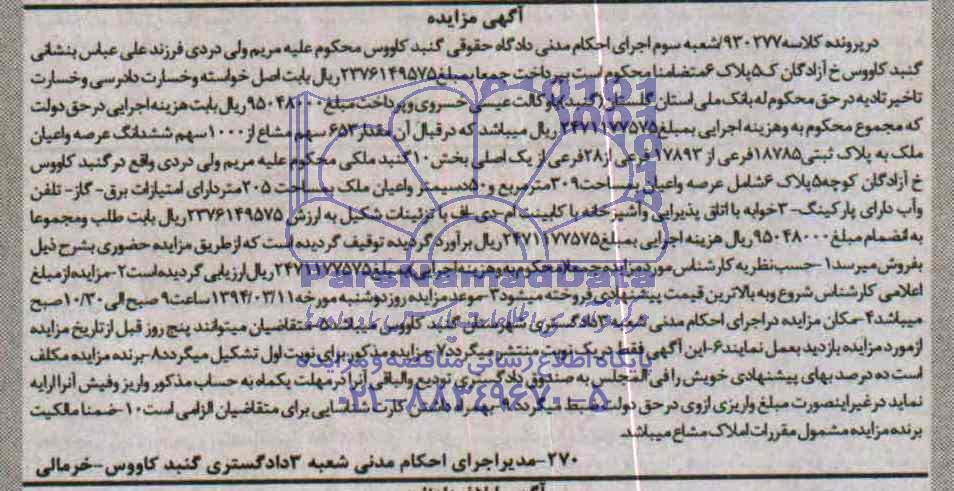 آگهی مزایده
در پرونده کلاسه ۹۳۰۲۷۷/شعبه سوم اجرای احکام مدنی دادگاه حقوقی گنبد کاووس محکوم علیه مریم ولی دردی فرزند علی عباس بنشانی
گنبد کاووس خ آزادگان ک۵پلاک ۶متضامنا محکوم است بپرداخت جمعا بمبلغ۲۳۷۶۱۴۹۵۷۵ریال بابت اصل خواسته وخسارت دادرسی وخسارت
تاخیر تادیه در حق محکوم له بانک ملی استان گلستان(گنبد)باوکالت عیسی خسروی وپرداخت مبلغ۹۵۰۴۸۰۰۰ریال بابت هزینه اجرایی در حق دولت
که مجموع محکوم به وهزینه اجرایی بمبلغ۲۴۷۱۱۷۷۵۷۵ ریال میباشد که درقبال آن مقدار۶۵۳ سهم مشاع از۱۰۰۰سهم ششدانگ عرصه واعیان
ملک به پلاک ثبتی۱۸۷۸۵فرعی از ۱۷۸۹۳فرعی از۲۸فرعی از یک اصلی بخش۱۰گنبد ملکی محکوم علیه مریم ولی دردی واقع در گنبد کاووس
خ آزادگان کوچه۵پلاک ۶شامل عرصه واعیان بمساحت۳۰۹مترمربع و۵۰دسیمتر واعیان ملک بمساحت ۲۰۵متردارای امتیازات برق- گاز- تلفن
وآب دارای پارکینگ-۳خوابه با اتاق پذیرایی وآشپزخانه با کابینت ام-دی-اف با تزئینات شکیل به ارزش ۲۳۷۶۱۴۹۵۷۵ریال بابت طلب ومجموعا
به انضمام مبلغ۹۵۰۴۸۰۰۰ریال هزینه اجرایی بمبلغ۲۴۷۱۱۷۷۵۷۵ریال برآورد گردیده توقیف گردیده است که از طریق مزایده حضوری بشرح ذیل
بفروش میرسد۱-حسب نظریه کارشناس مورد مزایده جمعا محکوم به وهزینه اجرایی بمبلغ۲۴۷۱۱۷۷۵۷۵ریال ارزیابی گردیده است۲-مزایده از مبلغ
اعلامی کارشناس شروع وبه بالاترین قیمت پیشنهادی فروخته میشود۳-موعد مزایده روز دوشنبه مورخه۱۳۹۴/۰۳/۱۱ساعت۹صبح الی ۱۰/۳۰صبح
میباشد۴-مکان مزایده در اجرای احکام مدنی شعبه۳دادگستری شهرستان گنبد کاووس میباشد۵-متقاضیان میتوانند پنج روز قبل از تاریخ مزایده
از مورد مزایده بازدید بعمل نمایند۶-این آگهی فقط در یک نوبت منتشر میگردد۷-مزایده مذکور برای نوبت اول تشکیل میگردد۸-برنده مزایده مکلف
است ده درصد بهای پیشنهادی خویش را فی المجلس به صندوق دادگستری تودیع والباقی آنرا در مهلت یکماه به حساب مذکور واریز وفیش آنرا ارایه
نماید در غیر اینصورت مبلغ واریزی از وی در حق دولت ضبط میگردد۹-بهمراه داشتن کارت شناسایی برای متقاضیان الزامی است۱۰-ضمنا مالکیت
برنده مزایده مشمول مقررات املاک مشاع میباشد.
۲۷۰-مدیر اجرای احکام مدنی شعبه ۳دادگستری گنبد کاووس-خرمالی
ParsNamadData
پایگاه اطلاع رسانی مناقصه و مزایده
۰۲۱-۸۸۳۴۹۶۷۰-۵